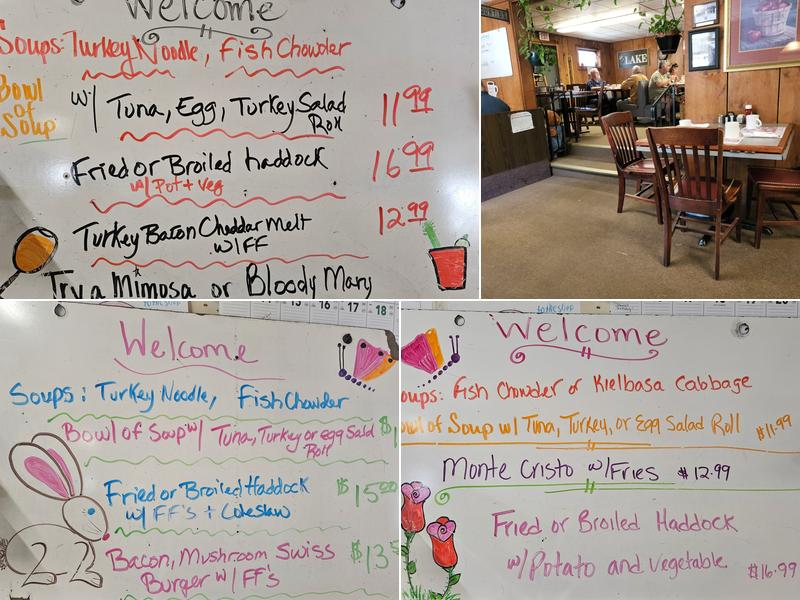 Welcome
Soups: Turkey Noodle, Fish Chowder
Bowl of Soup
w/ Tuna, Egg, Turkey Salad Roll
11.99
Fried or Broiled haddock
w/ Pot + Veg
16.99
Turkey Bacon Cheddar Melt
w/FF
12.99
Try a Mimosa or Bloody Mary
LAKE
16 17 18
Welcome
Soups: Turkey Noodle, Fish Chowder
Bowl of Soup w/ Tuna, Turkey or egg Salad
Roll
$1
Fried or Broiled Haddock
w/ FF's + Coleslaw
$15
Bacon, Mushroom Swiss
Burger w/ FF's
$13
Welcome
oups: Fish Chowder or Kielbasa Cabbage
owl of Soup w/ Tuna, Turkey, or Egg Salad Roll $11.99
Monte Cristo w/Fries $12.99
Fried or Broiled Haddock
w/Potato and Vegetable $16.99